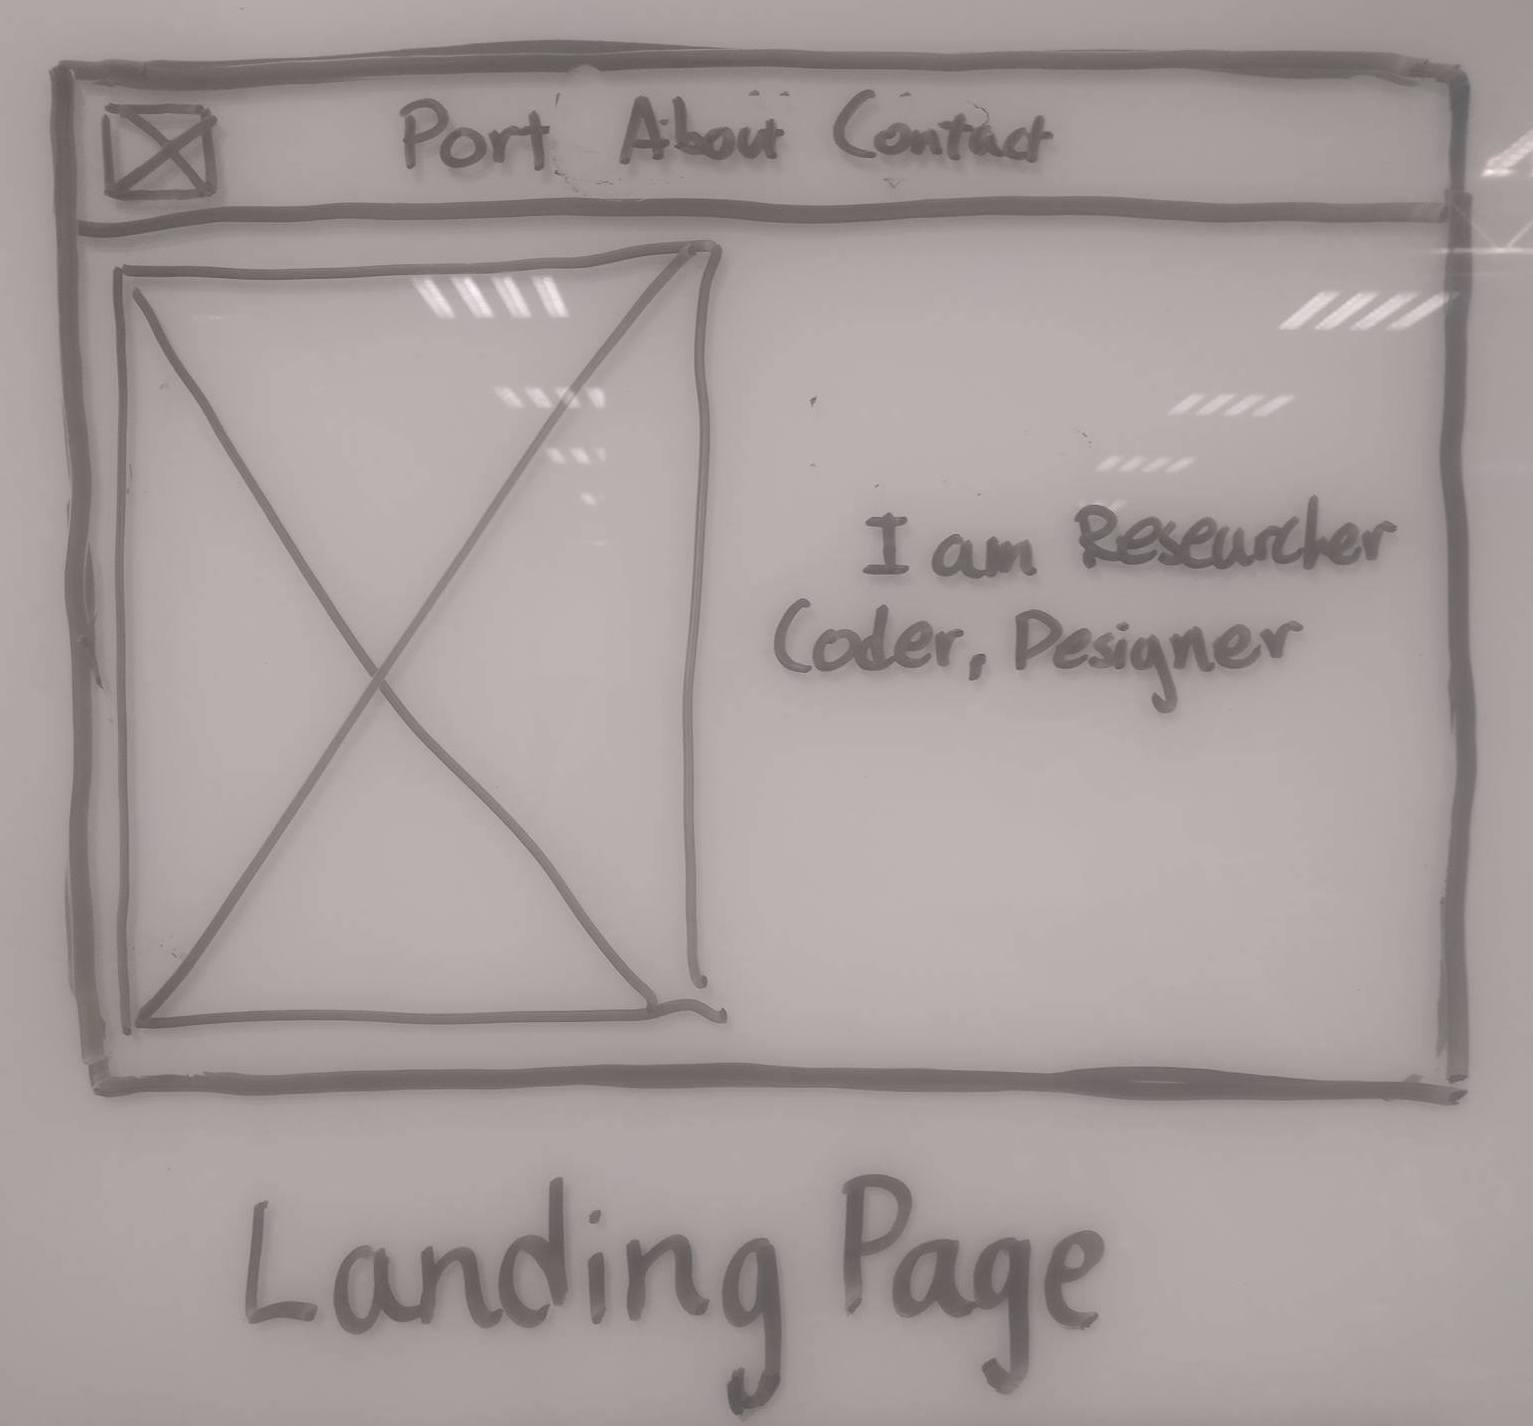 Port About Contact
I am Researcher
Coder, Designer
Landing Page